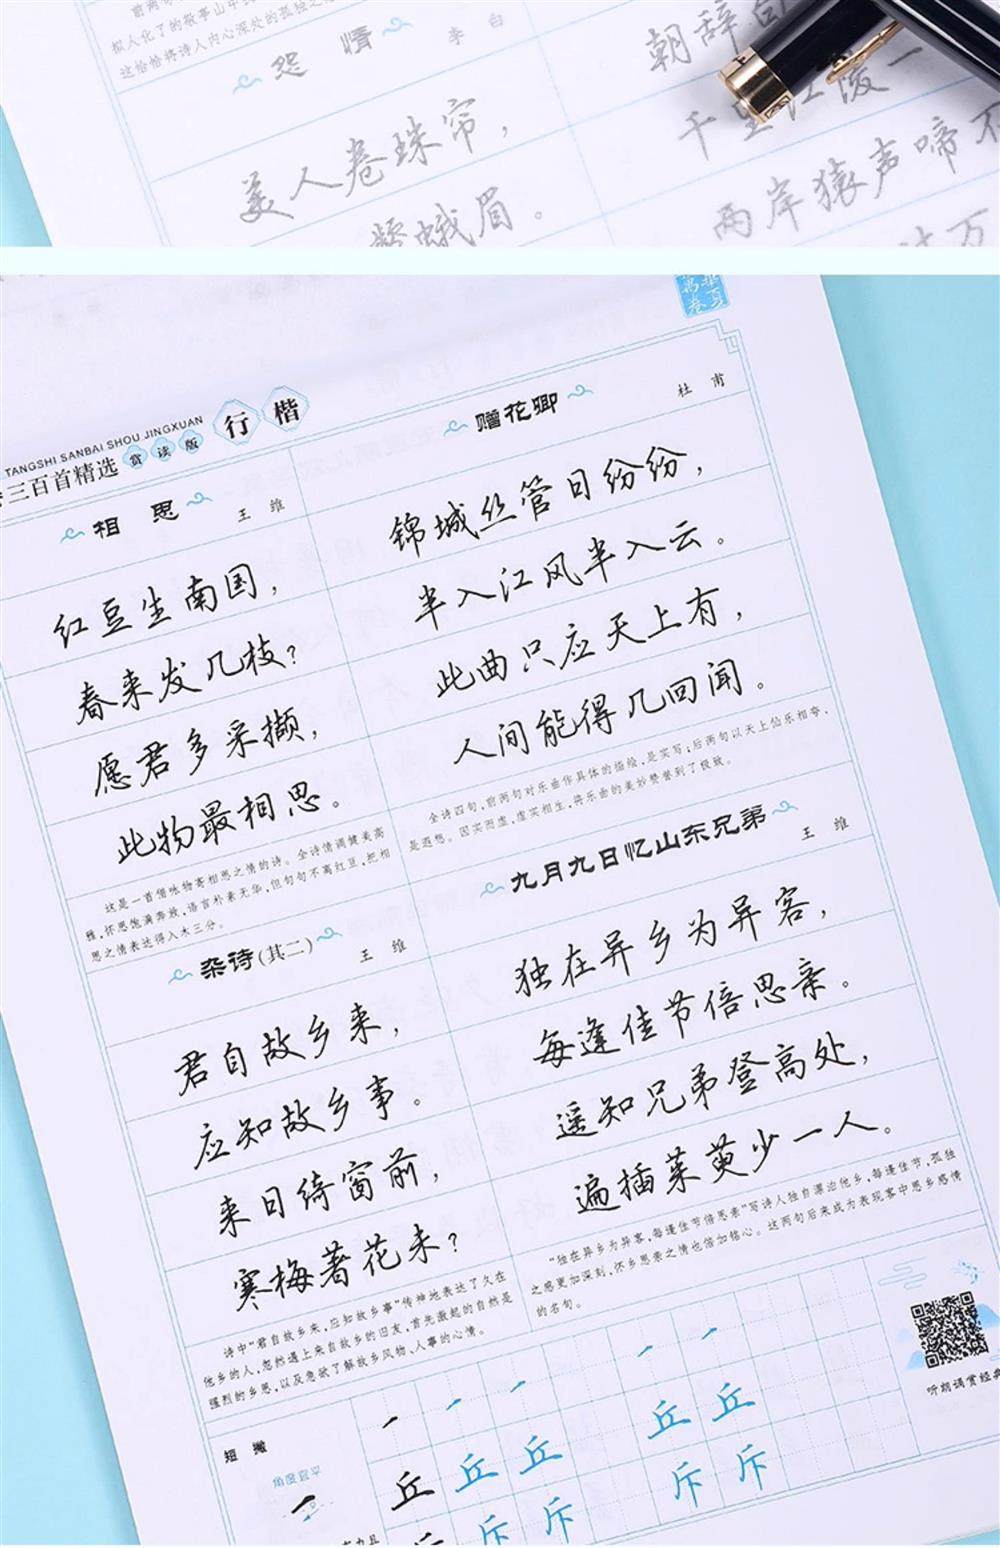 拟人化了的敬亭山中找
这恰恰将诗人内心深处的孤独之
怨 情
李 白
美人卷珠帘，
蛾眉。
朝辞白
千里江陵一
两岸猿声啼不
万
TANGSHI SANBAI SHOU JINGXUAN
三百首精选 赏读版 行楷
相 思
王 维
红豆生南国，
春来发几枝？
愿君多采撷，
此物最相思。
这是一首借咏物寄相思之情的诗。全诗情调健美高
雅，怀思饱满奔放，语言朴素无华，但句句不离红豆，把相
思之情表达得入木三分。
杂诗(其二)
王 维
君自故乡来，
应知故乡事。
来日绮窗前，
寒梅著花未？
诗中“君自故乡来，应知故乡事”传神地表达了久在
他乡的人，忽然遇上来自故乡的旧友，首先激起的自然是
强烈的乡思，以及急欲了解故乡风物、人事的心情。
赠花卿
杜 甫
锦城丝管日纷纷，
半入江风半入云。
此曲只应天上有，
人间能得几回闻。
全诗四句，前两句对乐曲作具体的描绘，是实写；后两句以天上仙乐相夸，
是遐想。因实而虚，虚实相生，将乐曲的美妙赞誉到了极致。
九月九日忆山东兄弟
王 维
独在异乡为异客，
每逢佳节倍思亲。
遥知兄弟登高处，
遍插茱萸少一人。
“独在异乡为异客，每逢佳节倍思亲”写诗人独自漂泊他乡，每逢佳节，孤独
之感更加深刻，怀乡思亲之情也倍加铭心。这两句后来成为表现客中思乡感情
的名句。
听朗诵赏经典
短 撇
角度宜平
丘 丘 丘 丘 丘
斥 斥 斥 斥